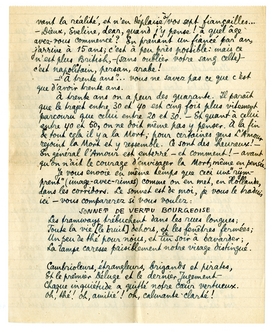 vant la réalité, et n'en déplaise à vos sept fiançailles...
— Bième, Eveline, dear, quand j'y pense! à quel âge
avez-vous commencé? En prenant un fiancé par an,
j'arrive à 15 ans; c'est à peu près possible: mais ce
n'est plus British, (sans oublier votre sang celle)
c'est napolitain, persan, arabe!
"À trente ans"... vous ne savez pas ce que c'est
que d'avoir trente ans.
À trente ans on a peur des quarante. Il paraît
que le trajet entre 30 et 40 est cinq fois plus vitement
parcouru que celui entre 20 et 30. — Et quant à celui
entre 40 et 50, on ne doit même pas y penser. À la fin
de tout cela il y a la Mort; pour certains dans l'Amour
rejoint la Mort et y ressemble. Ce sont des heureux! —
En général l'Amour est enterré — et comment! — avant
qu'on n'ait le courage d'envisager la Mort, même en pensée.
Je vous envoie en même temps que ceci une
(image-avec-rimes) comme on en met, en Hollande,
dans les corridors. Le Sonnet est de moi, je vous le traduis
ici — vous comparerez si vous voulez:
SONNET DE VERTU BOURGEOISE
Les tramways brûlent dans les rues longues;
Toute la vie (le bruit) dehors, et les fenêtres fermées;
Un peu de thé pour nous, et un soir à bavarder;
La lampe caresse paisiblement notre visage distingué.
Cambrioleurs, étrangleurs, brigands et pirates,
Et le premier Déluge et le dernier Jugement —
Chaque inquiétude a quitté notre cœur vertueux.
Oh, thé! oh, amitié! oh, calmante clarté!